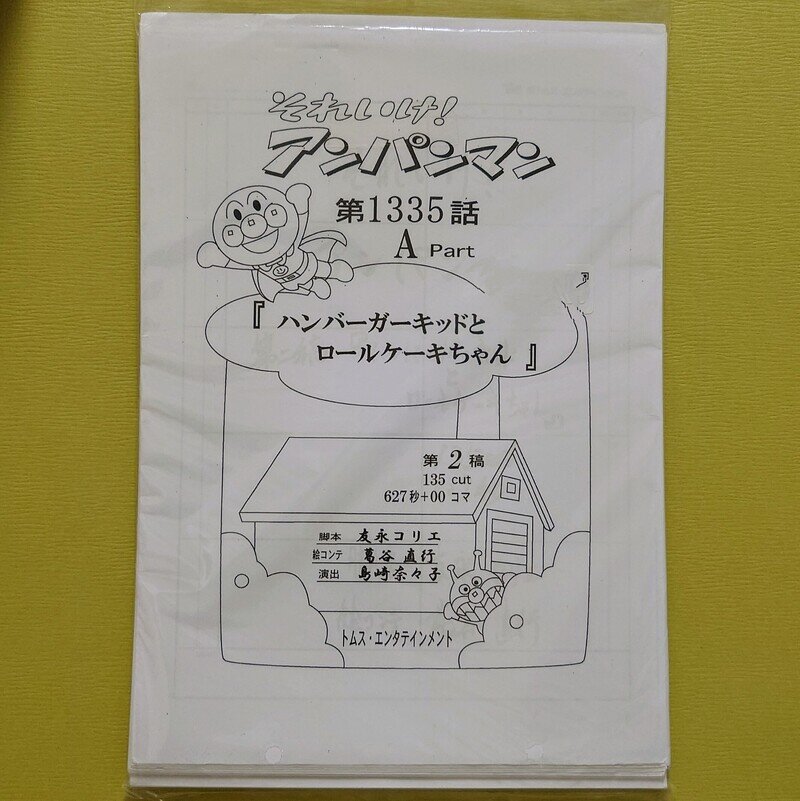 それいけ!
アンパンマン
第1335話
A Part
『ハンバーガーキッドと
ロールケーキちゃん』
第2稿
135 cut
627秒+00コマ
脚本 友永コリエ
絵コンテ 葛谷直行
演出 島崎奈々子
トムス・エンタテインメント